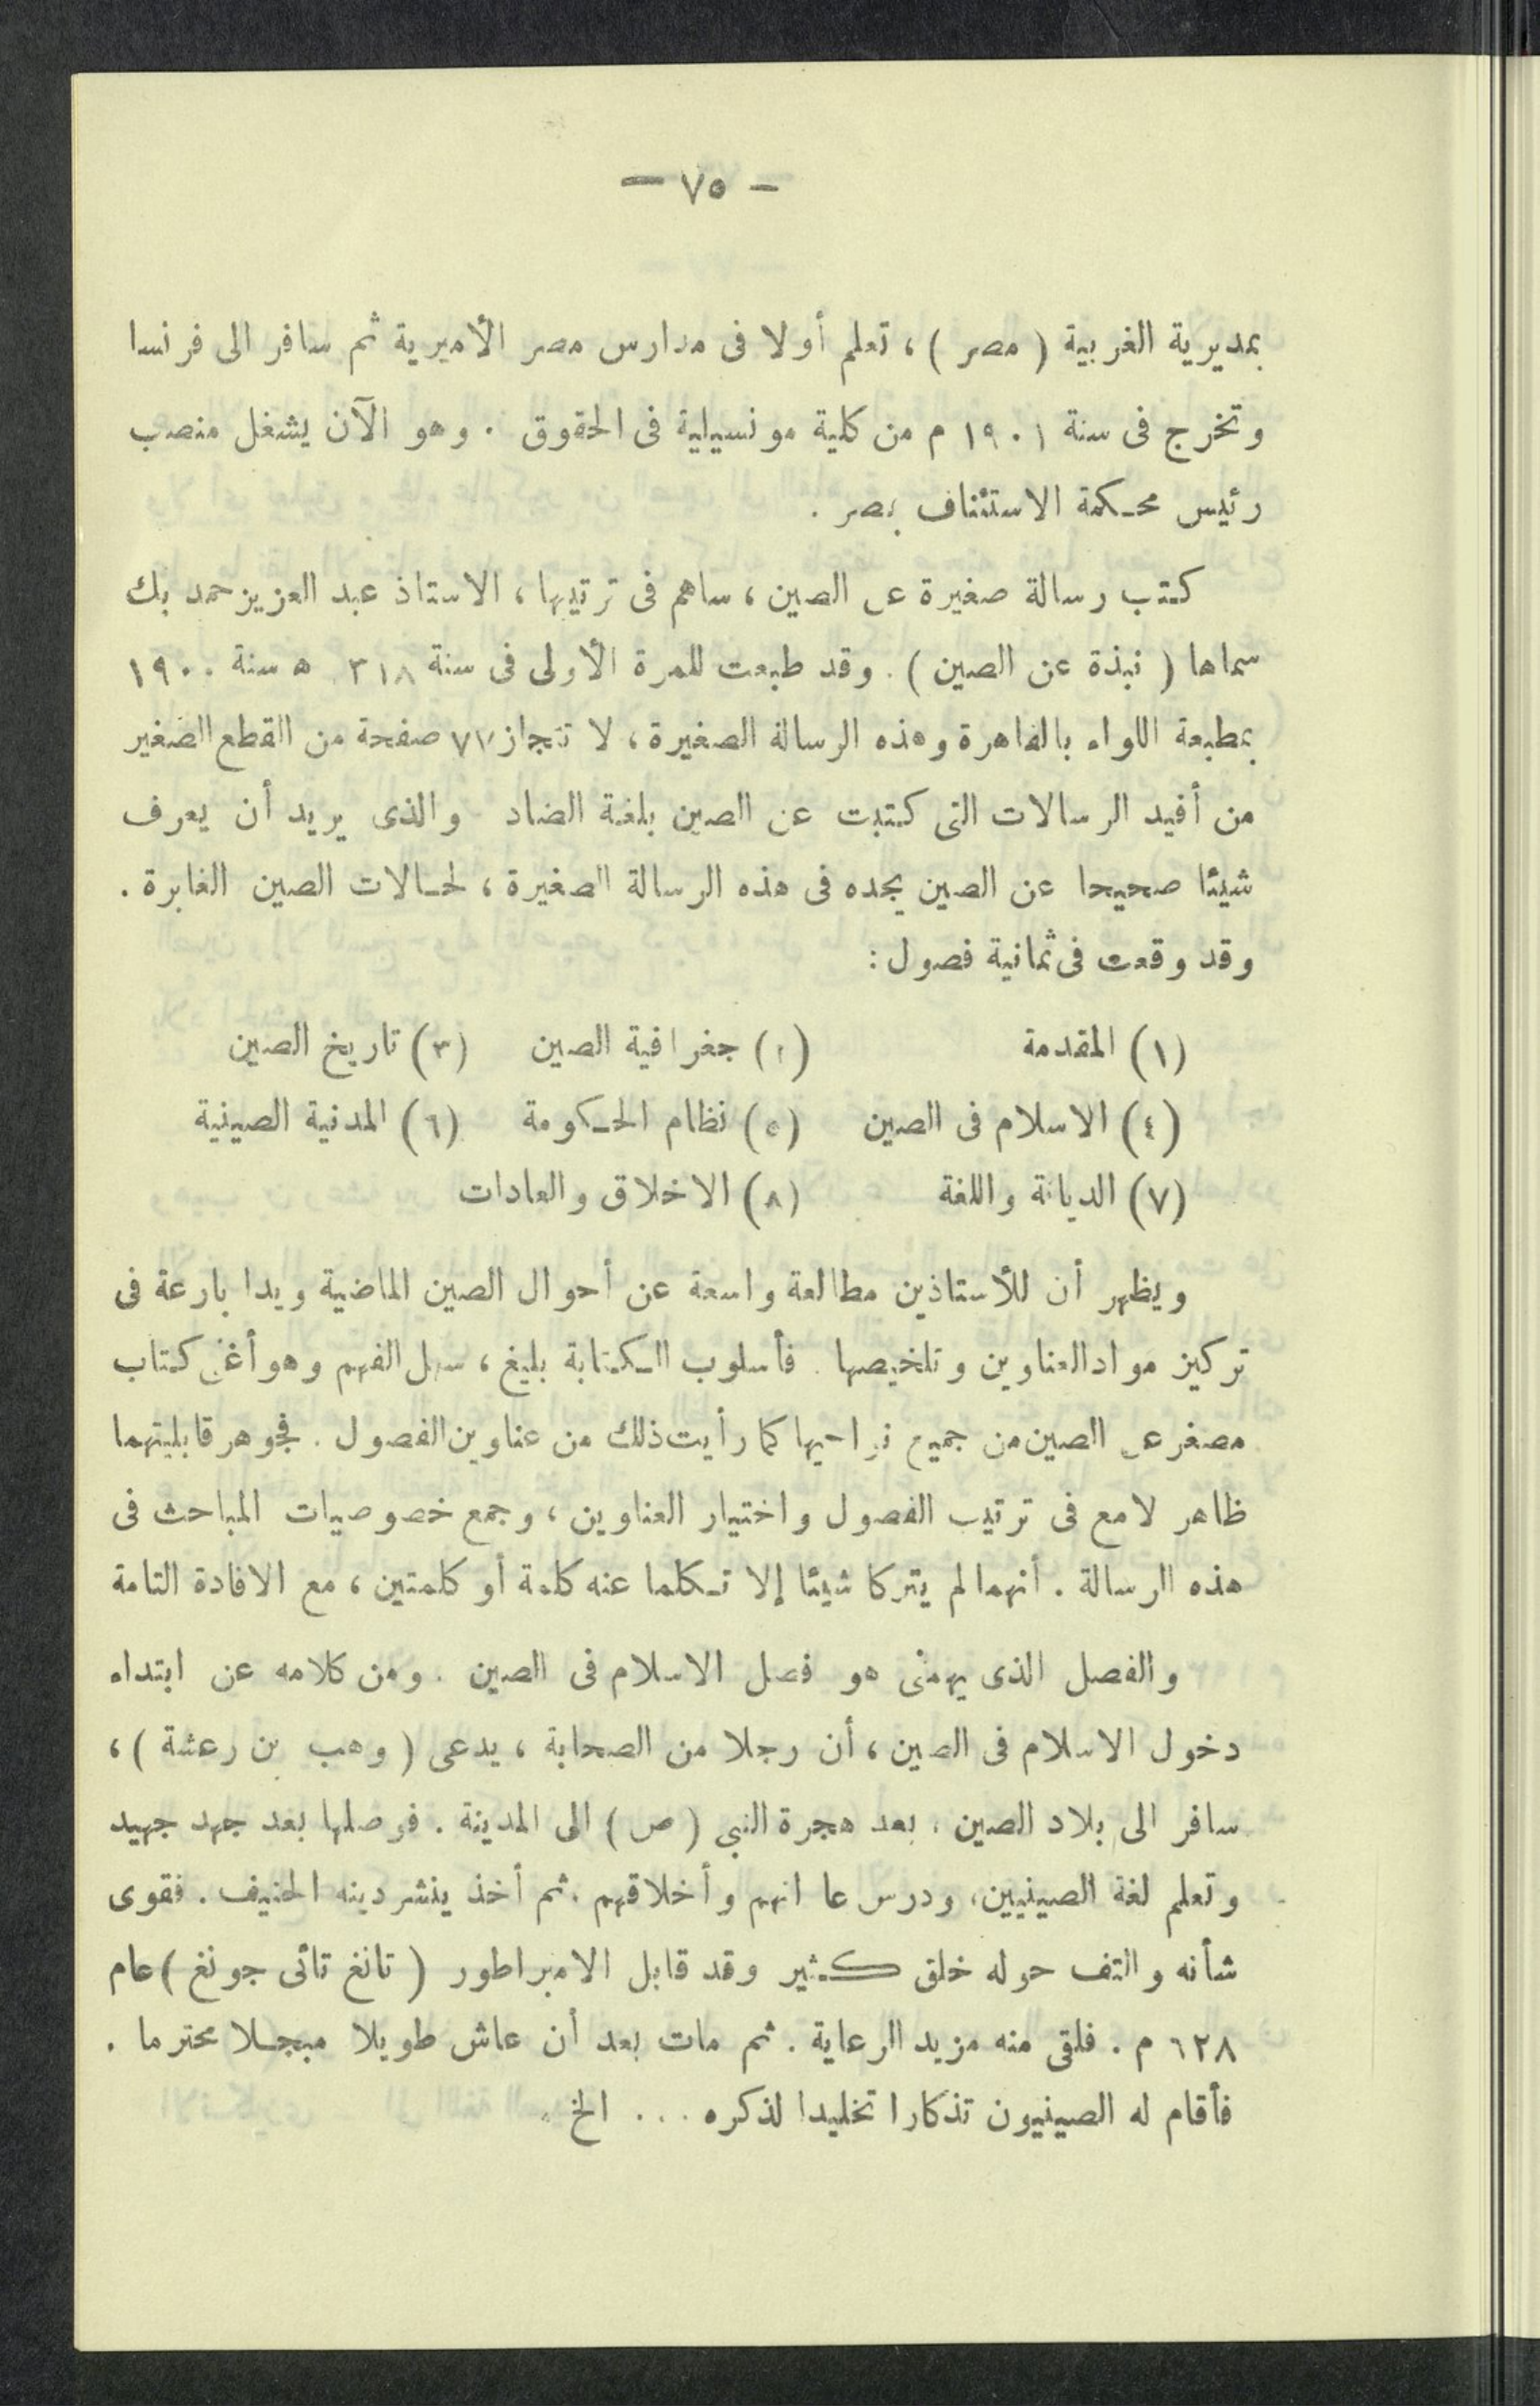 — ٧٥ —
بمديرية الغربية ( مصر ) ، تعلم أولا فى مدارس مصر الأميرية ثم سافر الى فرنسا
وتخرج فى سنة ١٩٠١ م من كلية مونسيلية فى الحقوق . وهو الآن يشغل منصب
رئيس محكمة الاستئناف بمصر .
كتب رسالة صغيرة عن الصين ، ساهم فى ترتيبها ، الاستاذ عبد العزيز حمد بك
سماها ( نبذة عن الصين ) . وقد طبعت للمرة الأولى فى سنة ٣١٨ ه سنة ١٩٠٠
بمطبعة اللواء بالقاهرة وهذه الرسالة الصغيرة ، لا تتجاز ٧٧ صفحة من القطع الصغير
من أفيد الرسالات التى كتبت عن الصين بلغة الضاد والذى يريد أن يعرف
شيئا صحيحا عن الصين يجده فى هذه الرسالة الصغيرة ، لحالات الصين الغابرة .
وقد وقعت فى ثمانية فصول :
(١) المقدمة (٢) جغرافية الصين (٣) تاريخ الصين
(٤) الاسلام فى الصين (٥) نظام الحكومة (٦) المدنية الصينية
(٧) الديانة واللغة (٨) الاخلاق والعادات
ويظهر أن للأستاذين مطالعة واسعة عن أحوال الصين الماضية ويدا بارعة فى
تركيز مواد العناوين وتلخيصها . فأسلوب الكتابة بليغ ، سهل الفهم وهو أغنى كتاب
مصغر عن الصين من جميع نواحيها كما رأيت ذلك من عناوين الفصول . فجوهر قابليتهما
ظاهر لامع فى ترتيب الفصول واختيار العناوين ، وجمع خصوصيات المباحث فى
هذه الرسالة . أنهما لم يتركا شيئا إلا تكلما عنه كلمة أو كلمتين ، مع الافادة التامة
والفصل الذى يهمنى هو فصل الاسلام فى الصين . ومن كلامه عن ابتداء
دخول الاسلام فى الصين ، أن رجلا من الصحابة ، يدعى ( وهب بن رعشة ) ،
سافر الى بلاد الصين ، بعد هجرة النبى ( ص ) الى المدينة . فوصلها بعد جهد جهيد
وتعلم لغة الصينيين ، ودرس عاداتهم وأخلاقهم . ثم أخذ ينشر دينه الحنيف . فقوى
شأنه والتف حوله خلق كثير وقد قابل الامبراطور ( تانغ تائى جونغ ) عام
٦٢٨ م . فلقى منه مزيد الرعاية . ثم مات بعد أن عاش طويلا مبجلا محترما .
فأقام له الصينيون تذكارا تخليدا لذكره ... الخ .